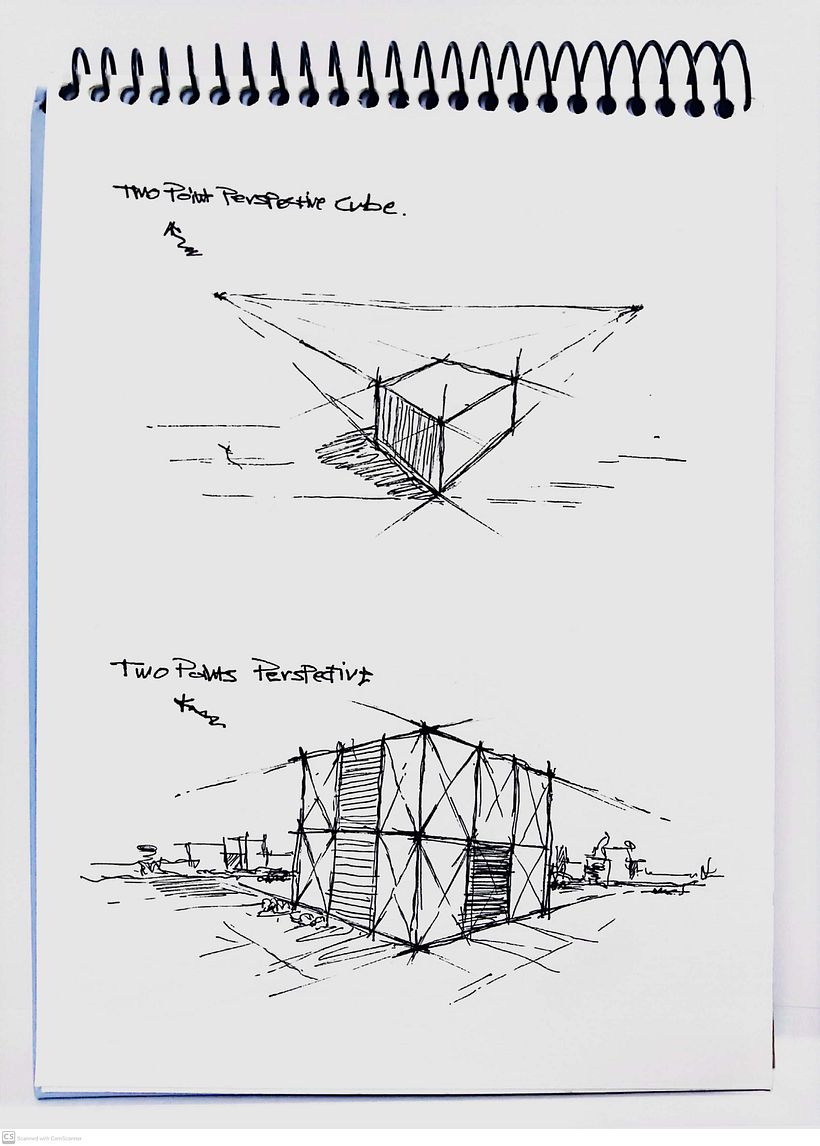 Two Point Perspective Cube.
Two Points Perspetive
CS Scanned with CamScanner